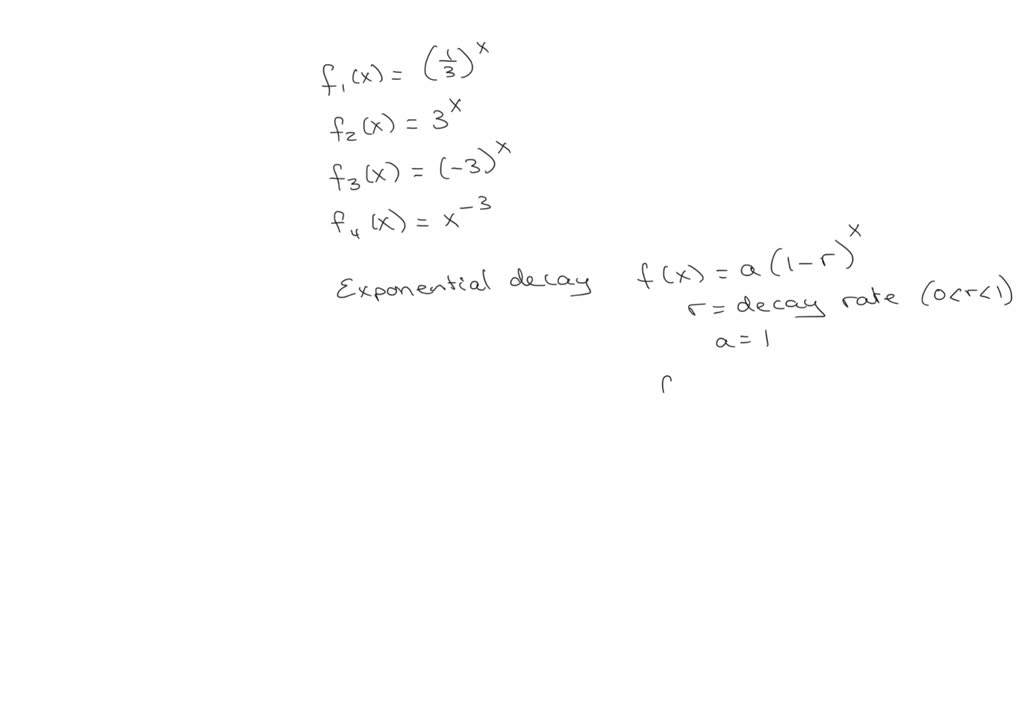 f₁(x) = (1/3)^x
f₂(x) = 3^x
f₃(x) = (-3)^x
f₄(x) = x^-3
Exponential decay f(x) = a(1-r)^x
r = decay rate (0<r<1)
a = 1